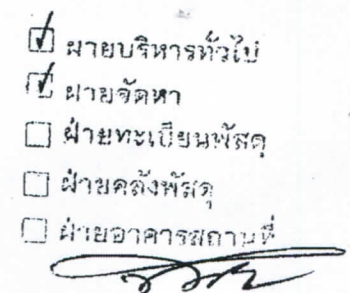 ☑ ฝ่ายบริหารทั่วไป
☑ ฝ่ายจัดหา
☐ ฝ่ายทะเบียนพัสดุ
☐ ฝ่ายคลังพัสดุ
☐ ฝ่ายอาคารสถานที่